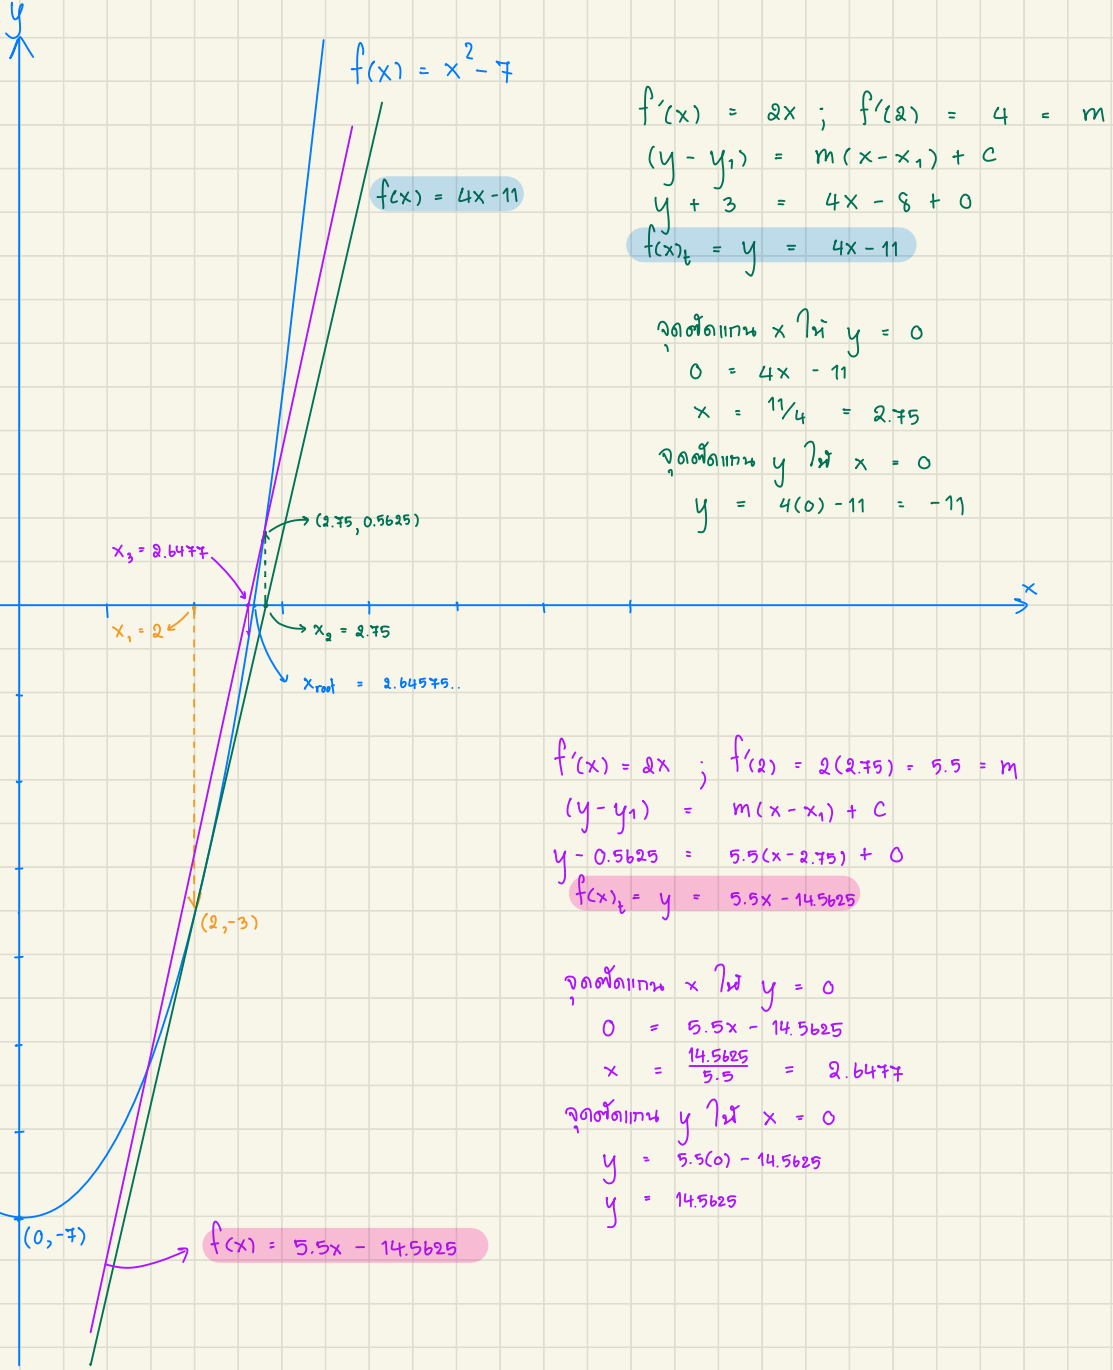 y
f(x) = x² - 7
f(x) = 4x - 11
f'(x) = 2x ; f'(2) = 4 = m
(y - y₁) = m(x - x₁) + c
y + 3 = 4x - 8 + 0
f(x)ₜ = y = 4x - 11
จุดตัดแกน x ให้ y = 0
0 = 4x - 11
x = 11/4 = 2.75
จุดตัดแกน y ให้ x = 0
y = 4(0) - 11 = -11
(2.75, 0.5625)
x₃ = 2.6477
x
x₁ = 2
x₂ = 2.75
x_root = 2.64575..
(2, -3)
f'(x) = 2x ; f'(2) = 2(2.75) = 5.5 = m
(y - y₁) = m(x - x₁) + c
y - 0.5625 = 5.5(x - 2.75) + 0
f(x)ₜ = y = 5.5x - 14.5625
จุดตัดแกน x ให้ y = 0
0 = 5.5x - 14.5625
x = 14.5625/5.5 = 2.6477
จุดตัดแกน y ให้ x = 0
y = 5.5(0) - 14.5625
y = 14.5625
(0, -7)
f(x) = 5.5x - 14.5625